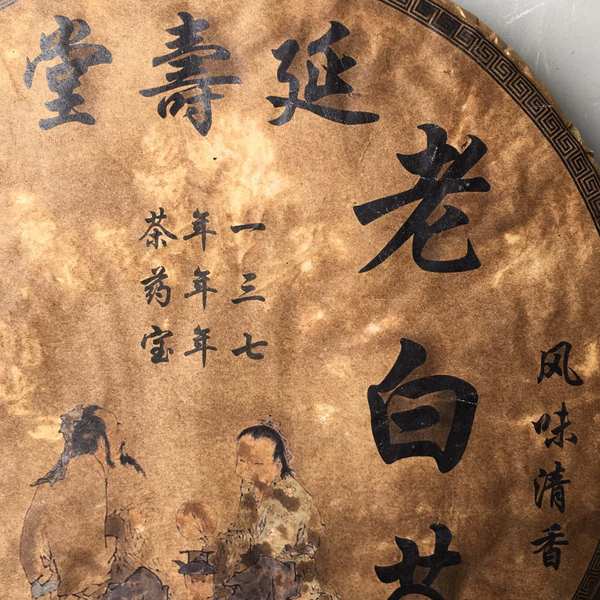 延壽堂
老白茶
风味清香
一年茶
三年药
七年宝